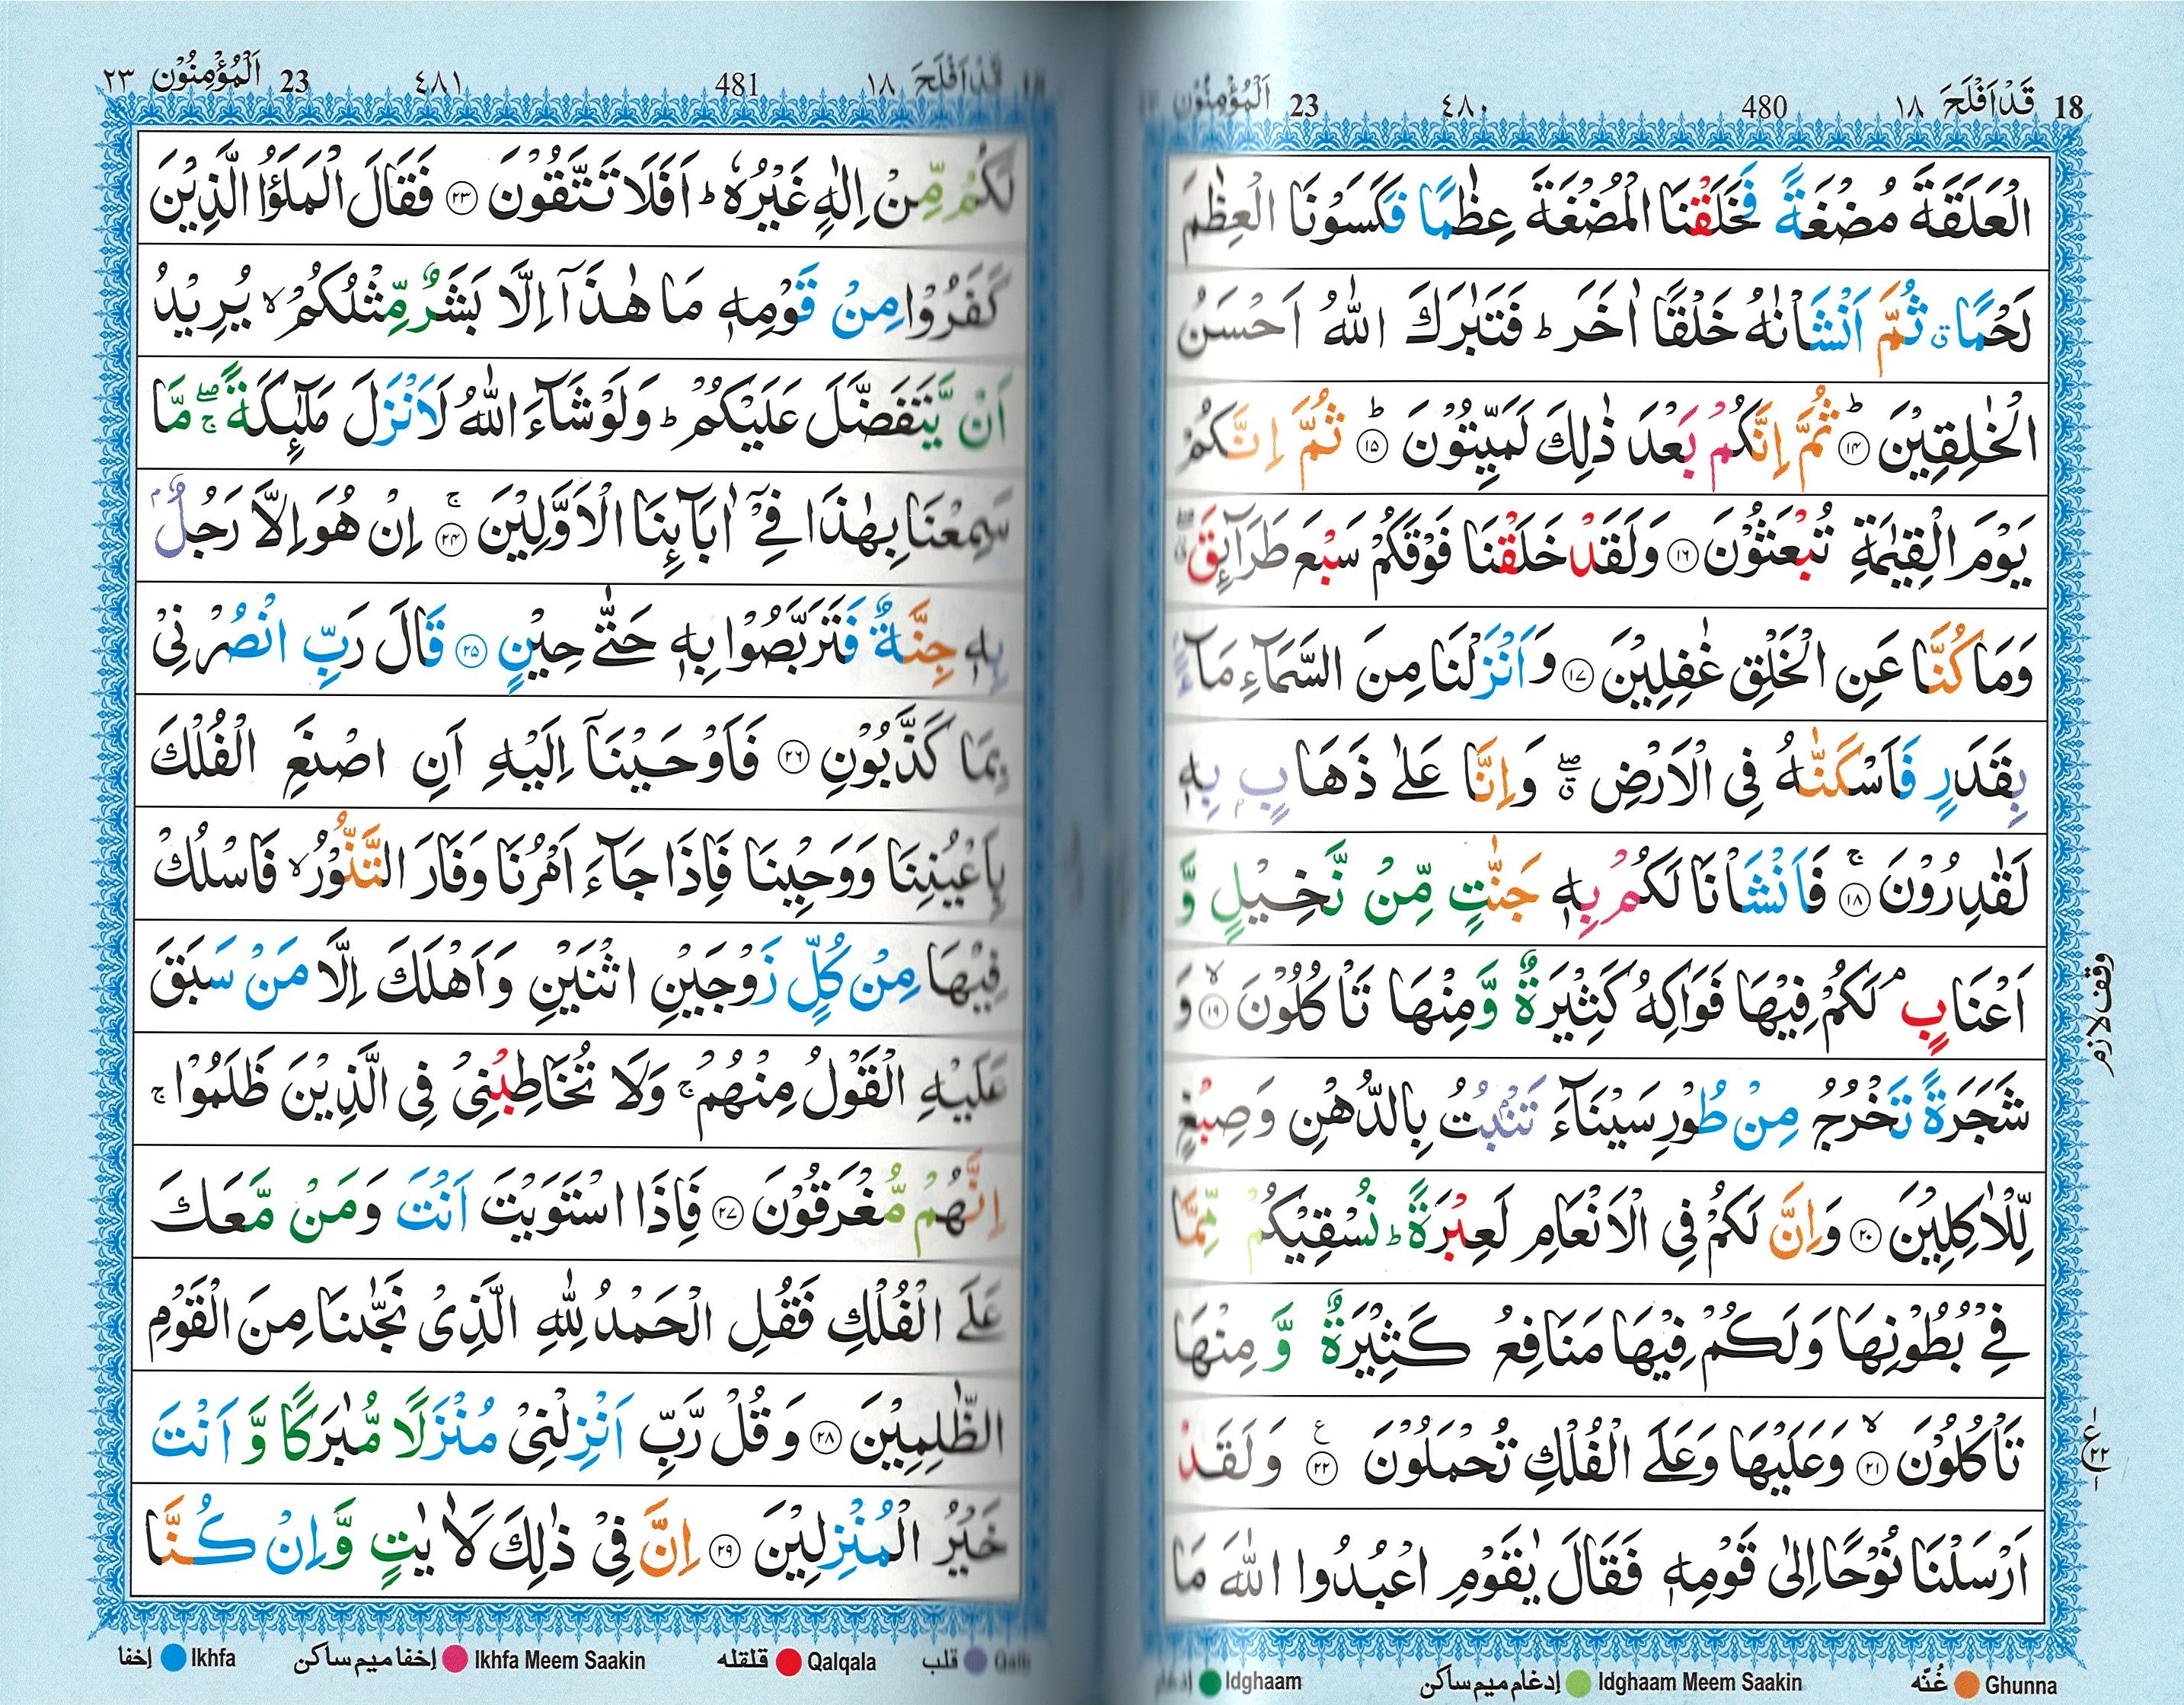 18 قَدْاَفْلَحَ ١٨ 480 ٤٨٠ 23 اَلْمُؤْمِنُوْن
الْعَلَقَةَ مُضْغَةً فَخَلَقْنَا الْمُضْغَةَ عِظٰمًا فَكَسَوْنَا الْعِظٰمَ
لَحْمًا ۗ ثُمَّ اَنْشَاْنٰهُ خَلْقًا اٰخَرَ ؕ فَتَبٰرَكَ اللّٰهُ اَحْسَنُ
الْخٰلِقِيْنَ ؕ ۱۴ ثُمَّ اِنَّكُمْ بَعْدَ ذٰلِكَ لَمَيِّتُوْنَ ؕ ۱۵ ثُمَّ اِنَّكُمْ
يَوْمَ الْقِيٰمَةِ تُبْعَثُوْنَ ۱۶ وَلَقَدْ خَلَقْنَا فَوْقَكُمْ سَبْعَ طَرَآئِقَ
وَمَا كُنَّا عَنِ الْخَلْقِ غٰفِلِيْنَ ۱۷ وَاَنْزَلْنَا مِنَ السَّمَآءِ مَآءًۢ
بِقَدَرٍ فَاَسْكَنّٰهُ فِى الْاَرْضِ ۖ وَاِنَّا عَلٰى ذَهَابٍۢ بِهٖ
لَقٰدِرُوْنَ ۚ ۱۸ فَاَنْشَاْنَا لَكُمْ بِهٖ جَنّٰتٍ مِّنْ نَّخِيْلٍ وَّ
اَعْنَابٍ ۘ لَكُمْ فِيْهَا فَوَاكِهُ كَثِيْرَةٌ وَّمِنْهَا تَاْكُلُوْنَ ۙ ۱۹ وَ
وقف لازم
شَجَرَةً تَخْرُجُ مِنْ طُوْرِ سَيْنَآءَ تَنْۢبُتُ بِالدُّهْنِ وَصِبْغٍ
لِّلْاٰكِلِيْنَ ۲۰ وَاِنَّ لَكُمْ فِى الْاَنْعَامِ لَعِبْرَةً ؕ نُسْقِيْكُمْ مِّمَّا
فِيْ بُطُوْنِهَا وَلَكُمْ فِيْهَا مَنَافِعُ كَثِيْرَةٌ وَّ مِنْهَا
تَاْكُلُوْنَ ۙ ۲۱ وَعَلَيْهَا وَعَلَى الْفُلْكِ تُحْمَلُوْنَ ۲۲ وَلَقَدْ
اَرْسَلْنَا نُوْحًا اِلٰى قَوْمِهٖ فَقَالَ يٰقَوْمِ اعْبُدُوا اللّٰهَ مَا
Ghunna غُنّه Idghaam Meem Saakin إدغام ميم ساكن Idghaam إدغام
قَدْاَفْلَحَ ١٨ 481 ٤٨١ 23 اَلْمُؤْمِنُوْن ٢٣
لَكُمْ مِّنْ اِلٰهٍ غَيْرُهٗ ؕ اَفَلَا تَتَّقُوْنَ ۲۳ فَقَالَ الْمَلَؤُا الَّذِيْنَ
كَفَرُوْا مِنْ قَوْمِهٖ مَا هٰذَآ اِلَّا بَشَرٌ مِّثْلُكُمْ ۙ يُرِيْدُ
اَنْ يَّتَفَضَّلَ عَلَيْكُمْ ؕ وَلَوْ شَآءَ اللّٰهُ لَاَنْزَلَ مَلٰٓئِكَةً ۖۚ مَّا
سَمِعْنَا بِهٰذَا فِيْٓ اٰبَآئِنَا الْاَوَّلِيْنَ ۚ ۲۴ اِنْ هُوَ اِلَّا رَجُلٌۢ
بِهٖ جِنَّةٌ فَتَرَبَّصُوْا بِهٖ حَتّٰى حِيْنٍ ۲۵ قَالَ رَبِّ انْصُرْنِيْ
بِمَا كَذَّبُوْنِ ۲۶ فَاَوْحَيْنَآ اِلَيْهِ اَنِ اصْنَعِ الْفُلْكَ
بِاَعْيُنِنَا وَوَحْيِنَا فَاِذَا جَآءَ اَمْرُنَا وَفَارَ التَّنُّوْرُ ۙ فَاسْلُكْ
فِيْهَا مِنْ كُلٍّ زَوْجَيْنِ اثْنَيْنِ وَاَهْلَكَ اِلَّا مَنْ سَبَقَ
عَلَيْهِ الْقَوْلُ مِنْهُمْ ۚ وَلَا تُخَاطِبْنِيْ فِى الَّذِيْنَ ظَلَمُوْا ۚ
اِنَّهُمْ مُّغْرَقُوْنَ ۲۷ فَاِذَا اسْتَوَيْتَ اَنْتَ وَمَنْ مَّعَكَ
عَلَى الْفُلْكِ فَقُلِ الْحَمْدُ لِلّٰهِ الَّذِيْ نَجّٰىنَا مِنَ الْقَوْمِ
الظّٰلِمِيْنَ ۲۸ وَقُلْ رَّبِّ اَنْزِلْنِيْ مُنْزَلًا مُّبٰرَكًا وَّ اَنْتَ
خَيْرُ الْمُنْزِلِيْنَ ۲۹ اِنَّ فِيْ ذٰلِكَ لَاٰيٰتٍ وَّاِنْ كُنَّا
Qalb قلب Qalqala قلقله Ikhfa Meem Saakin إخفا ميم ساكن Ikhfa إخفا